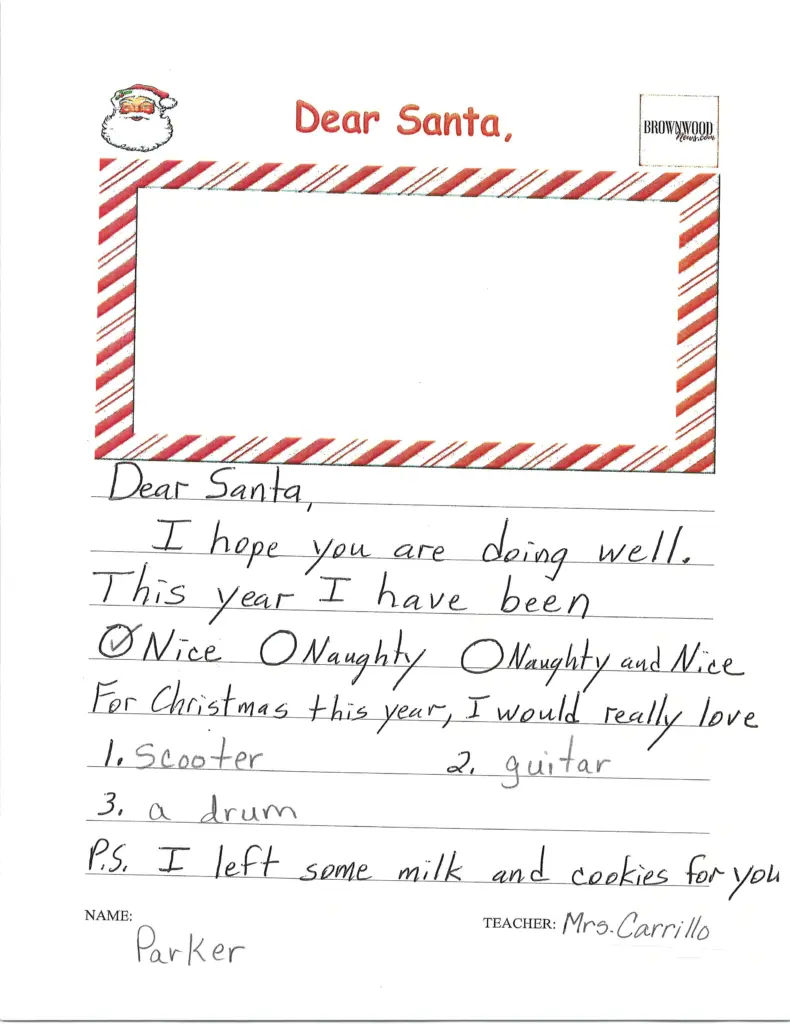 Dear Santa,
BROWNWOOD
News.com
Dear Santa,
I hope you are doing well.
This year I have been
Nice Naughty Naughty and Nice
For Christmas this year, I would really love
1. Scooter 2. guitar
3. a drum
P.S. I left some milk and cookies for you
NAME: Parker
TEACHER: Mrs. Carrillo